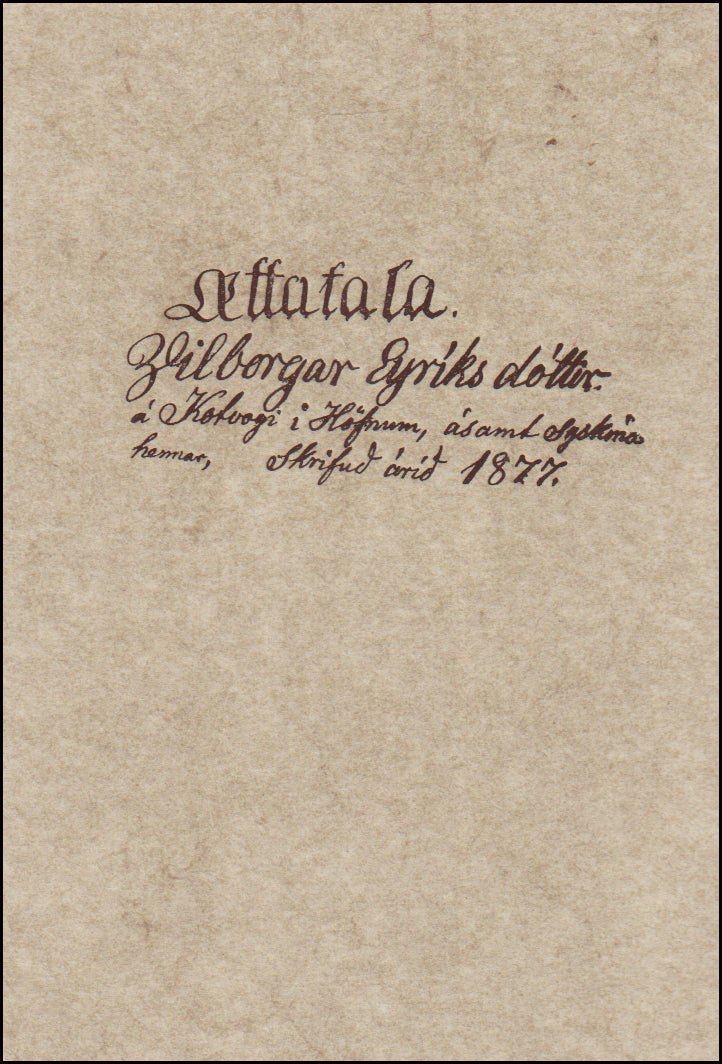 Ættatala.
Vilborgar Eyríks dóttir.
á Kotvogi í Höfnum, ásamt Syskina
hennar, Skrifuð árið 1877.